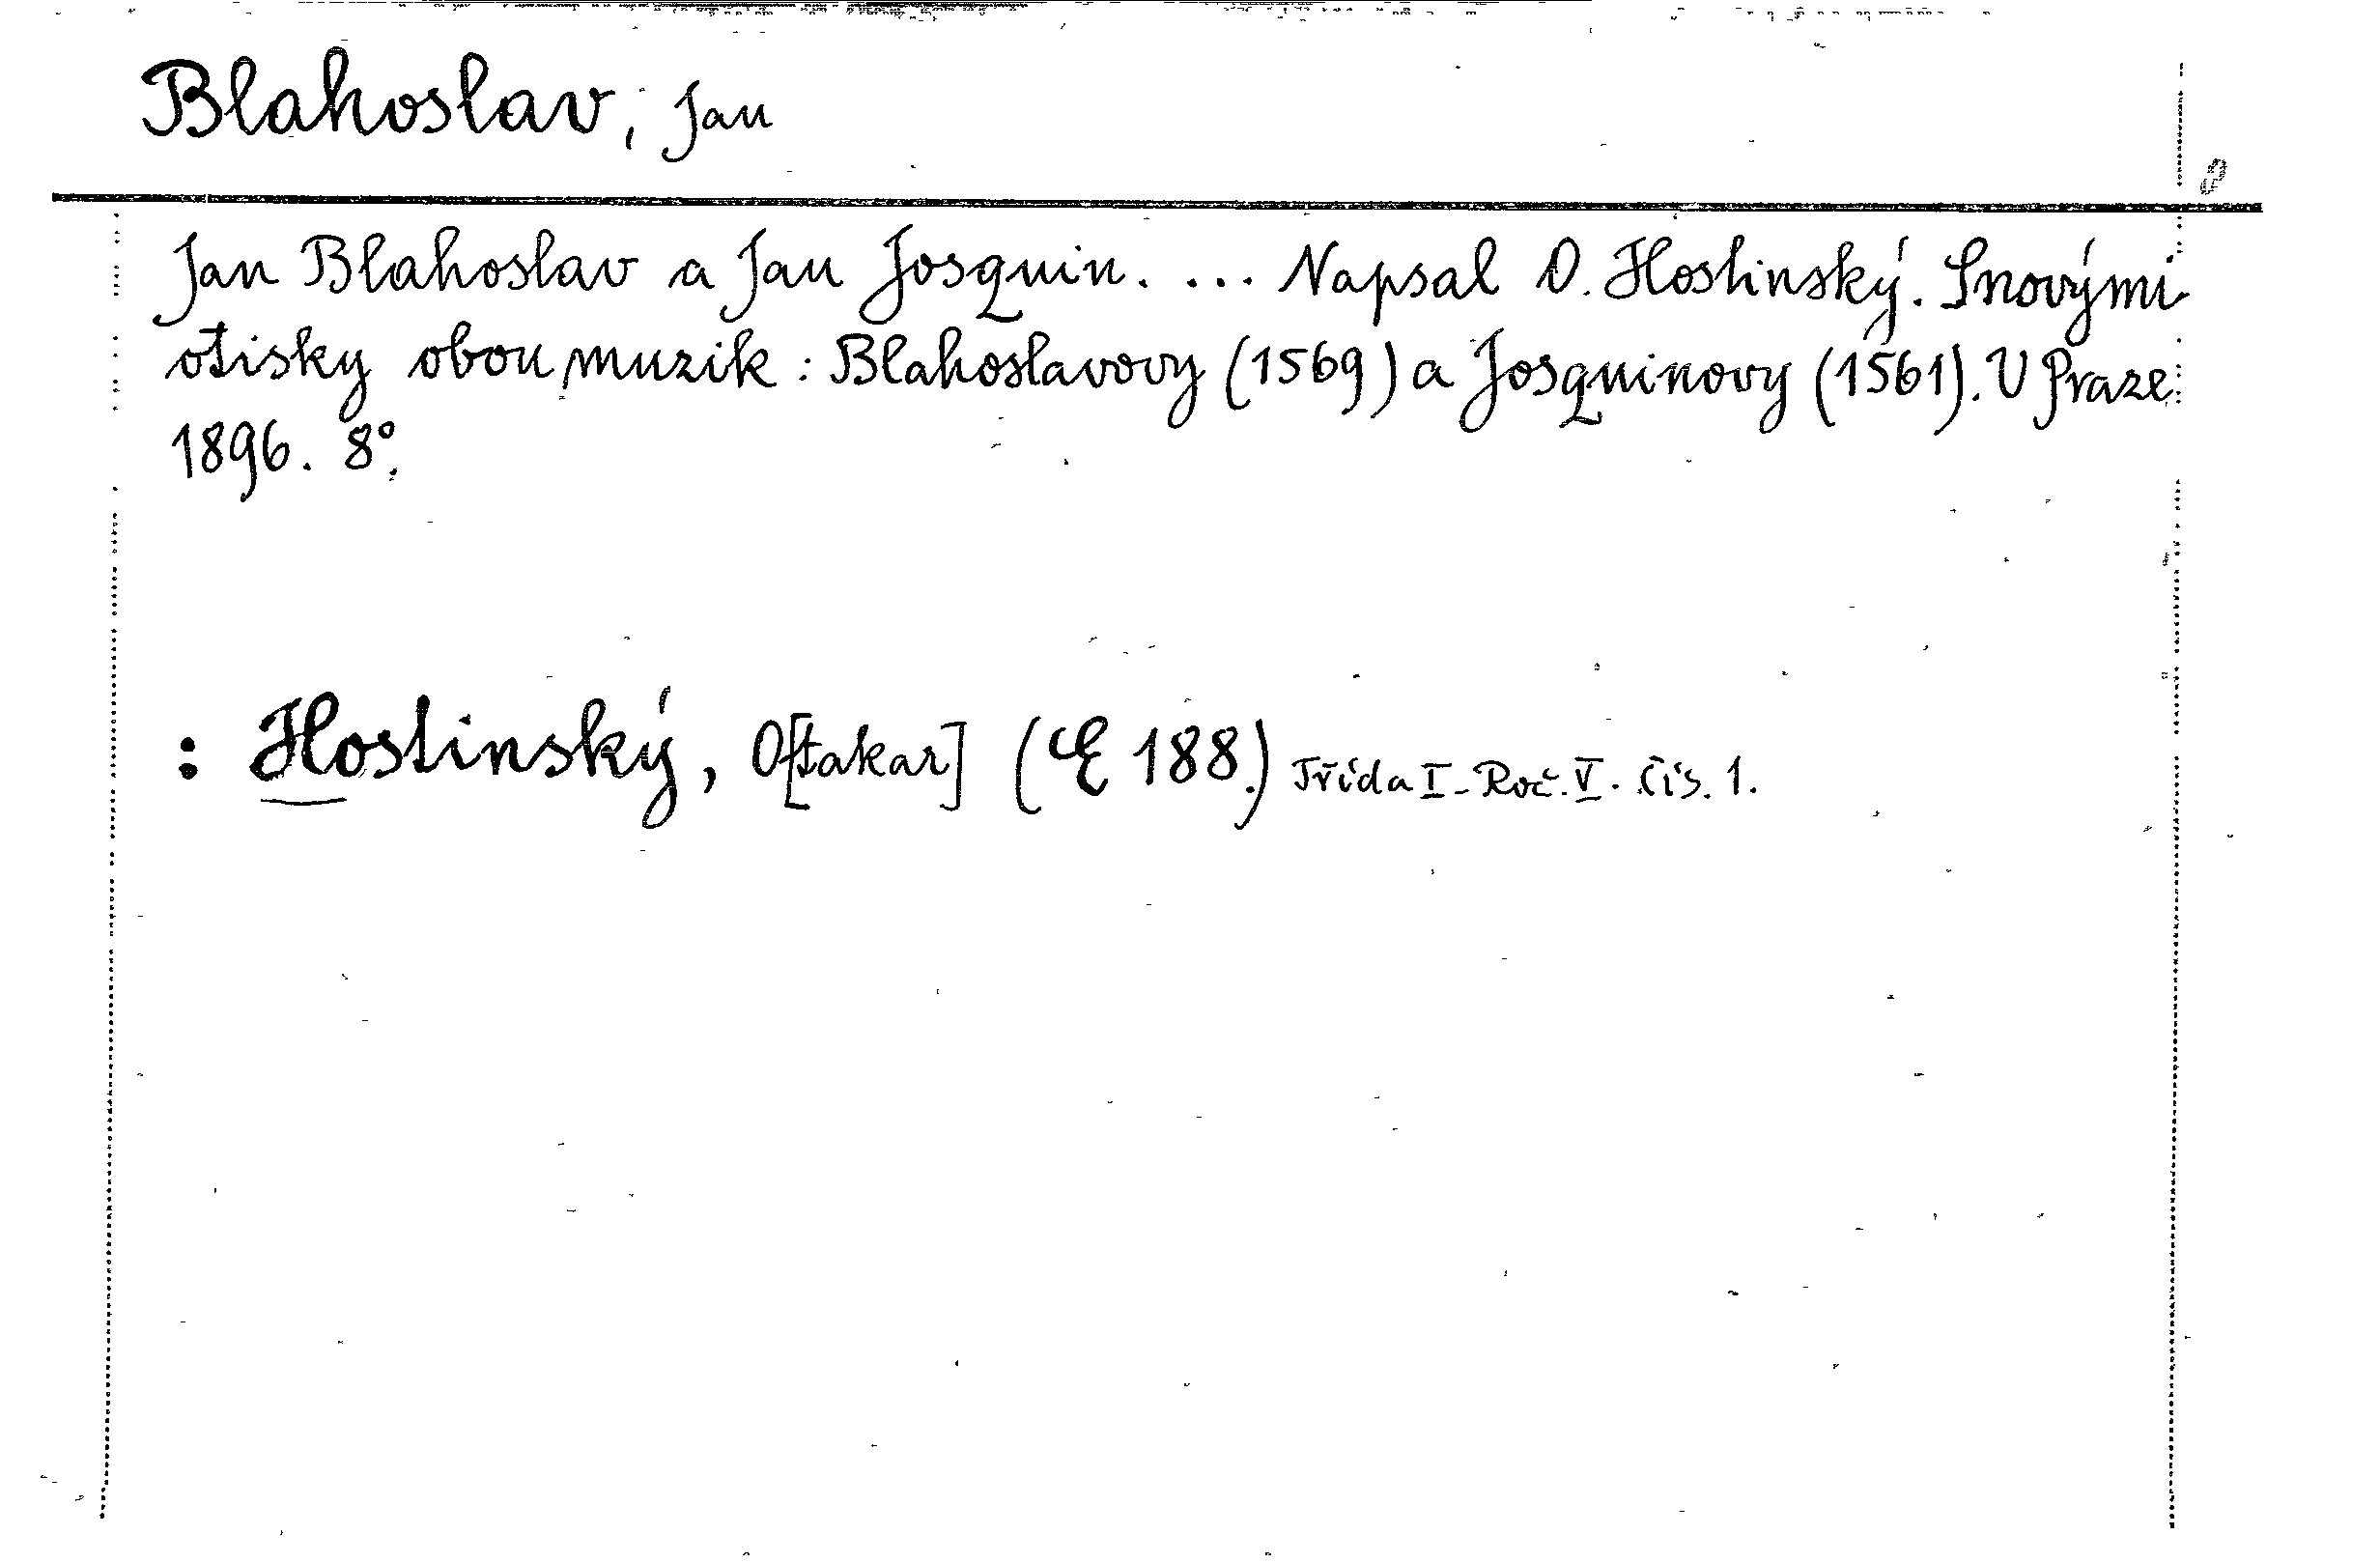 Blahoslav, Jan
Jan Blahoslav a Jan Josquin. ... Napsal O. Hostinský. S novými
otisky obou muzik: Blahoslavovy (1569) a Josquinovy (1561). V Praze
1896. 8°.
: Hostinský, O[takar] (E 188.) Třída I. Roč. V. Čís. 1.